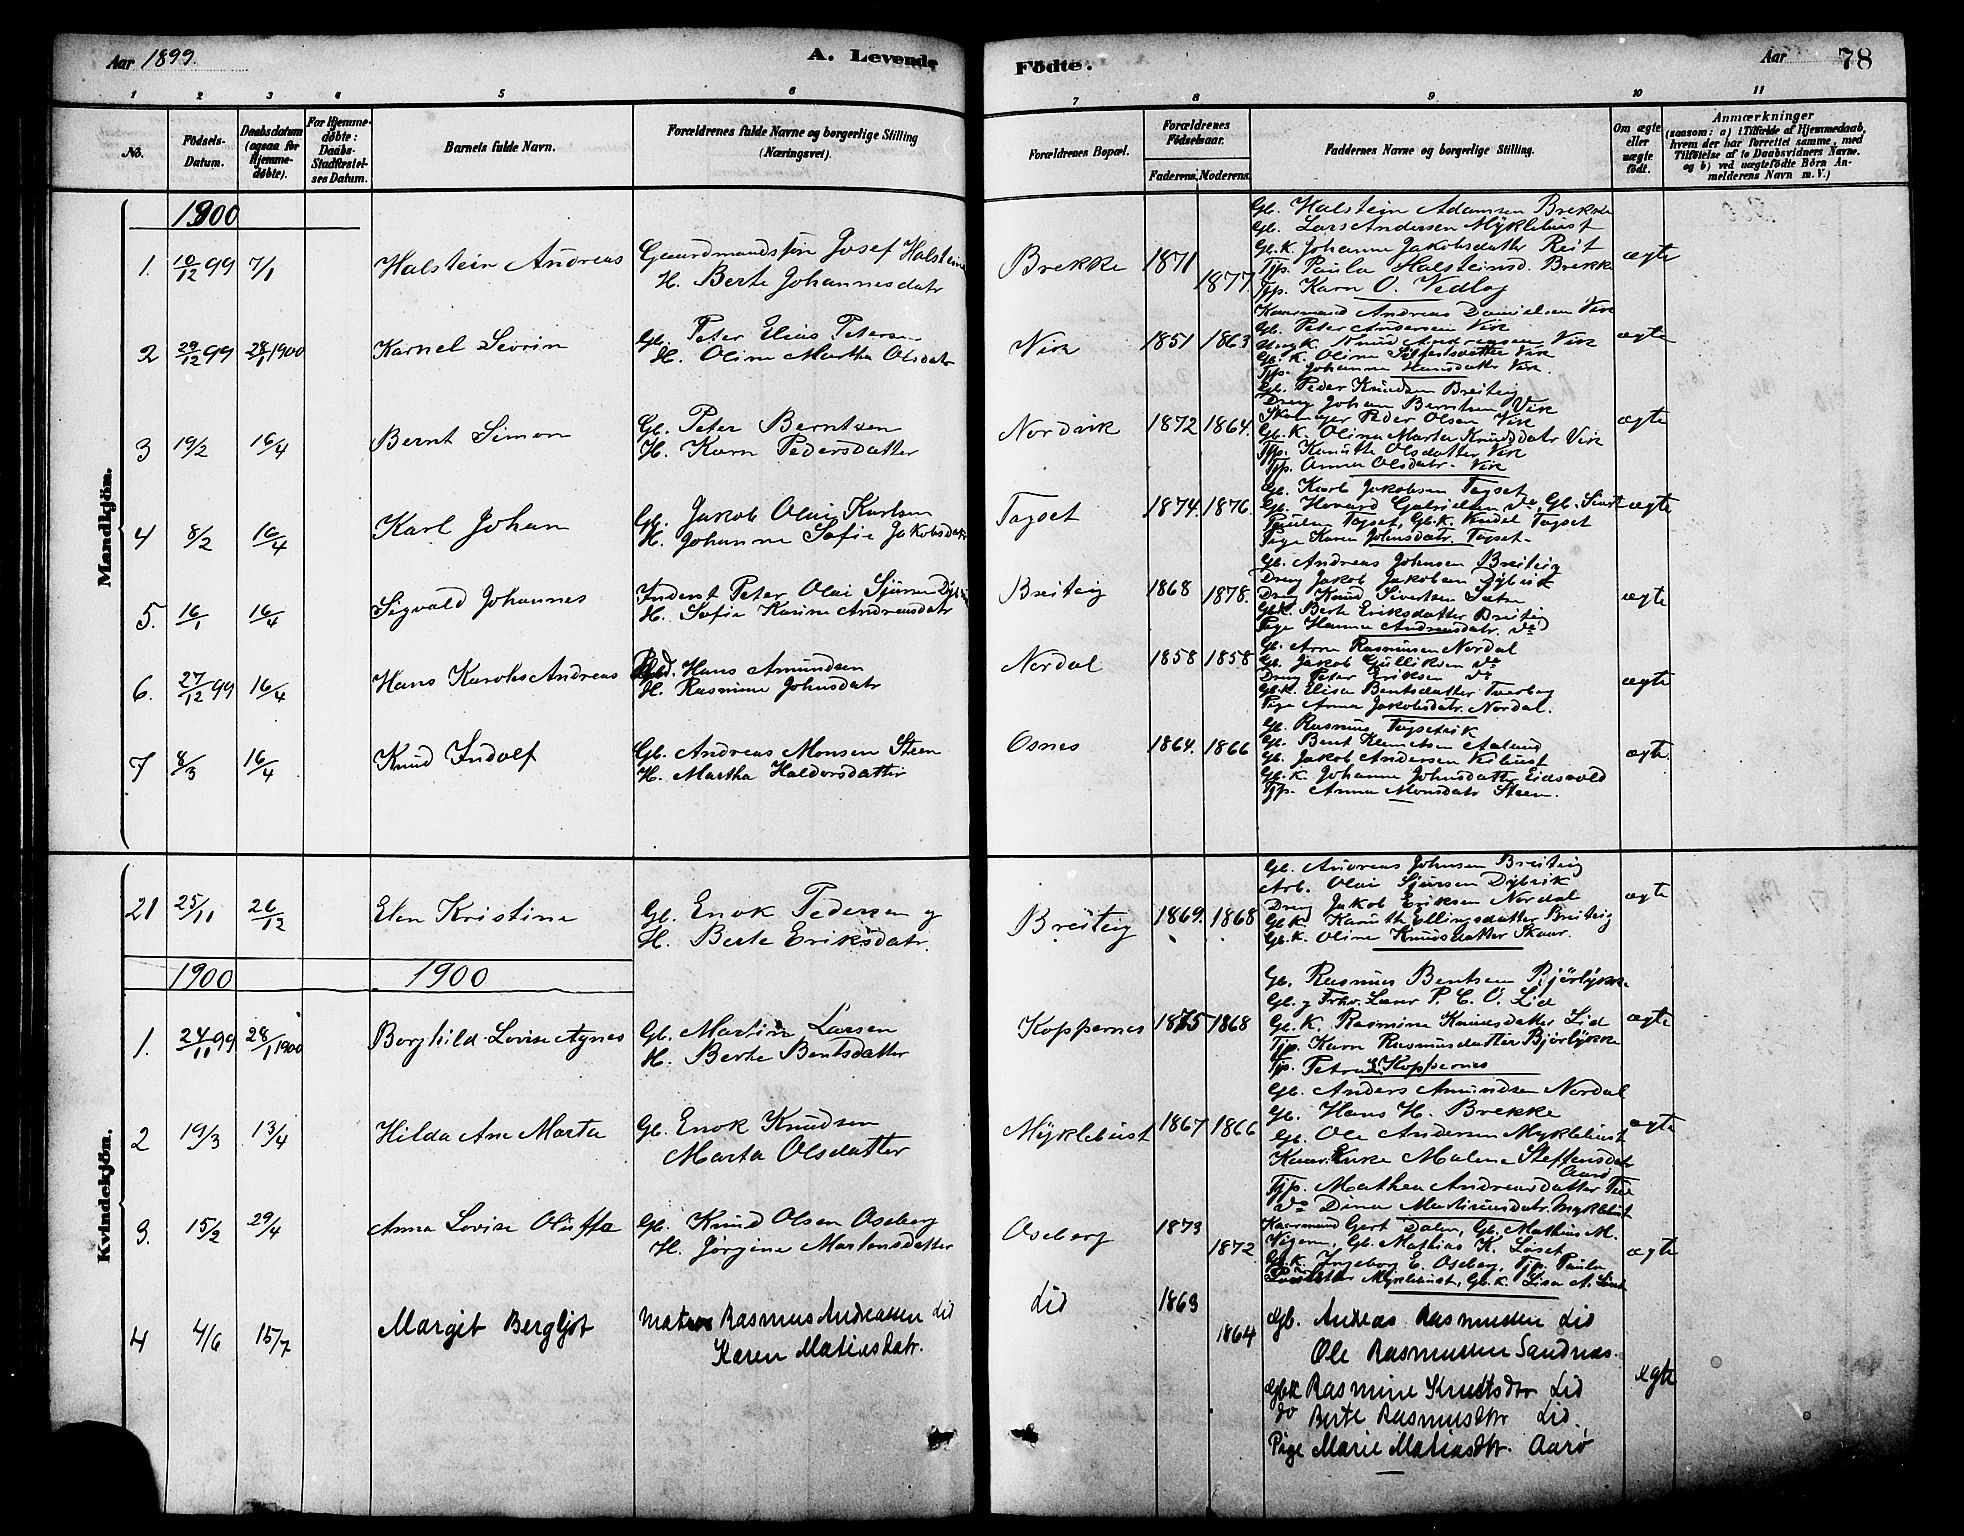 Aar 1899.
A. Levende
Födte.
Aar
78
1 2 3 4 5 6 7 8 9 10 11
No.
Födsels-Datum.
Daabsdatum (ogsaa for Hjemmedøbte).
For Hjemmedøbte: Daabs-Stadfæstelses Datum.
Barnets fulde Navn.
Forældrenes fulde Navne og borgerlige Stilling (Næringsvei).
Forældrenes Bopæl.
Forældrenes Födselsaar.
Faderens. Moderens.
Faddernes Navne og borgerlige Stilling.
Om ægte eller uægte født.
Anmærkninger
(saasom: a) i Tilfælde af Hjemmedaab, hvem der har forrettet samme, med Tilføielse af to Daabsvidners Navne. og b) ved uægtefødte Börn Anmelderens Navn m. V.)
Mandkjön.
1900
1. 10/12 99 7/1 Halstein Andreas
Gaardmandssøn Josef Halstein
H. Berte Johannesdatr
Brekke 1871 1877.
Gb. Halstein Adamsen Brekke
Gb. Lars Andersen Myklebust
Gb.K. Johanne Jakobsdatter Reit
Tjp. Paula Halsteinsd. Brekke
Tjp. Karn O. Vedlog
ægte
2 29/12 99 28/1 1900 Karnel Sevrin
Gb. Peter Elias Petersen
H. Oline Martha Olsdatr
Vik 1851 1863
Kaarmand Andreas Danielsen Vik
Gb. Peter Andersen Vik
Ungk. Knud Andreassen Vik
Gb.K. Oline Sjursdatter Vik
Tjp. Johanna Hansdatr Vik.
ægte
3 19/2 16/4 Bernt Simon
Gb. Peter Berntsen
H. Karn Pedersdatter
Nordvik 1872 1864.
Gb. Peder Knudsen Breiteig
Dreng Johan Berntsen Vik
Skomager Peder Olsen Vik
Gb.K. Olina Marta Knudsdatr Vik
Tjp. Kanutte Olsdatter Vik
Tjp. Anna Olsdatr. Vik
ægte
4 8/2 16/4 Karl Johan
Gb. Jakob Olai Karlsen
H. Johanne Sofie Jakobsdatr
Tagset 1874. 1876.
Gb. Karl Jakobsen Tagset
Gb. Havard Gabrielsen do, Gb. Sivert
Paulsen Tagset, Gb.K. Kudel Tagset
Pige Karen Johnsdatr. Tagset
ægte
5. 16/1 16/4 Sigvald Johannes
Inderst Peter Olai Sjursen Dybvik
H. Sofie Karine Andreasdatr
Breiteig 1868 1878.
Gb. Andreas Johnsen Breiteig
Dreng Jakob Jakobsen Dybvik
Dreng Knud Sivertsen Sætre
Gb.K. Berte Eriksdatter Breiteig
Pige Hanna Andreasdatr. do
ægte
6. 27/12 99 16/4 Hans Karolus Andreas
Hans Amundsen
H. Rasmine Johnsdatr
Nordal 1858 1858
Gb. Arne Rasmussen Nordal
Gb. Jakob Gulliksen do
Dreng Peter Eriksen do
Gb.K. Elisa Bentsdatter Tverberg
Pige Anna Jakobsdatr. Nordal.
ægte
7 8/3 16/4 Knud Indolf
Gb. Andreas Monsen Steen
H. Martha Haldorsdatter
Osnes 1864. 1866
Gb. Rasmus Tagsetvik
Gb. Bent Klemetsen Aalund
Gb. Jakob Andersen
Gb.K. Johanne Johnsdatter Eidsvold
Tjp. Anna Monsdatr Steen.
ægte
Kvindekjön.
21 25/11 26/12 Elen Kristine
Gb. Enok Pedersen og
H. Berte Eriksdatr.
Breiteig 1869. 1868
Gb. Andreas Johnsen Breiteig
Arb. Olai Sjursen Dybvik
Dreng Jakob Eriksen Nordal
Gb.K. Kanuthe Ellingsdatter Breiteig
Gb.K. Oline Knudsdatter Skaar.
ægte
1900 1900
1. 24/11 99 28/1 1900 Borghild Lovise Agnes
Gb. Martin Larsen
H. Berte Bentsdatter
Koppernes 1875 1868
Gb. Rasmus Bentsen Bjørlykke
Gb. og Frhv. Lærer P. C. O. Lid
Gb.K. Rasmine Knudsdatter Lid
Tjp. Karn Rasmusdatter Bjørlykke
Tjp. Petra L. Koppernes
ægte
2 19/3 13/4 Hilda Ane Marta
Gb. Enok Knudsen
Marta Olsdatter
Myklebust 1867 1866
Gb. Anders Amundsen Nordal
Gb. Hans H. Brekke
Gb. Ole Andersen Myklebust
Kaar.Enke Malene Steffensdatr Aarø
Tjp. Mathea Andreasdatter Tue
do Dina Martinusdatr. Myklebust
ægte
3. 15/2 29/4 Anna Lovise Oluffa
Gb. Knud Olsen Oseberg
H. Jørgine Martensdatter
Oseberg 1873 1872
Kaarmand Gert Dalen, Gb. Mathias M.
Vigem, Gb. Mathias K. Løset
Gb.K. Ingeborg E. Oseberg, Tjp. Paula
Myklebust, Gb.K. Lisa A.
ægte
4 4/6 15/7 Margit Bergljot
Matros Rasmus Andreassen Lid
Karen Matiasdatr.
Lid 1863 1864
Gb. Andreas Rasmussen Lid
Ole Rasmussen Sandnæs.
Gbk Rasmine Knutsdtr Lid
do Berte Rasmusdtr Lid.
Pige Marie Matiasdtr. Aarø
ægte